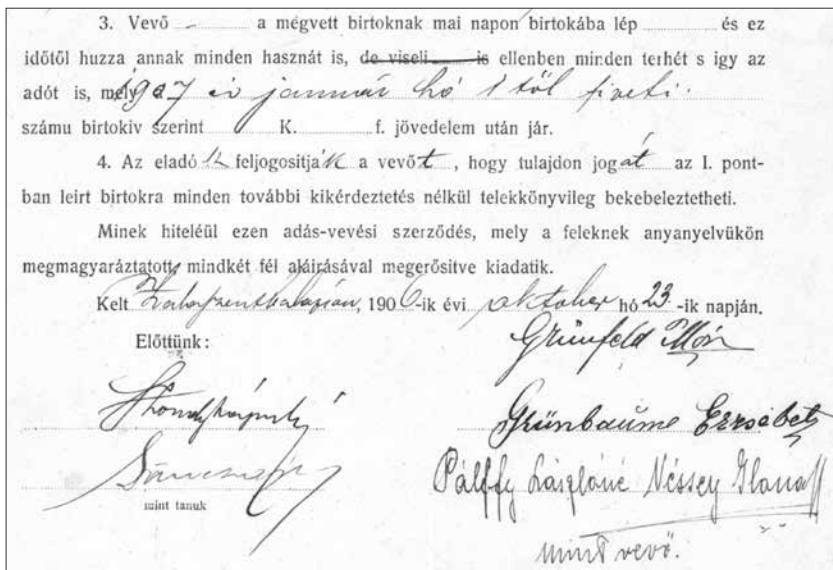 3. Vevő a megvett birtoknak mai napon birtokába lép és ez
időtől huzza annak minden hasznát is, de viseli is ellenben minden terhét s igy az
adót is, mely 1907 év január hó 1 től fizeti.
számu birtokiv szerint K. f. jövedelem után jár.
4. Az eladók feljogositják a vevőt, hogy tulajdon jogát az I. pont-
ban leirt birtokra minden további kikérdeztetés nélkül telekkönyvileg bekebeleztetheti.
Minek hiteléül ezen adás-vevési szerződés, mely a feleknek anyanyelvükön
megmagyaráztatott, mindkét fél aláirásával megerősitve kiadatik.
Kelt 1906-ik évi oktober hó 23-ik napján.
Előttünk:
Grünfeld Mór
Grünbaüme Erzsébet
Pálffy Lászlóné Véssey Ilona
mint tanuk
mint vevő.